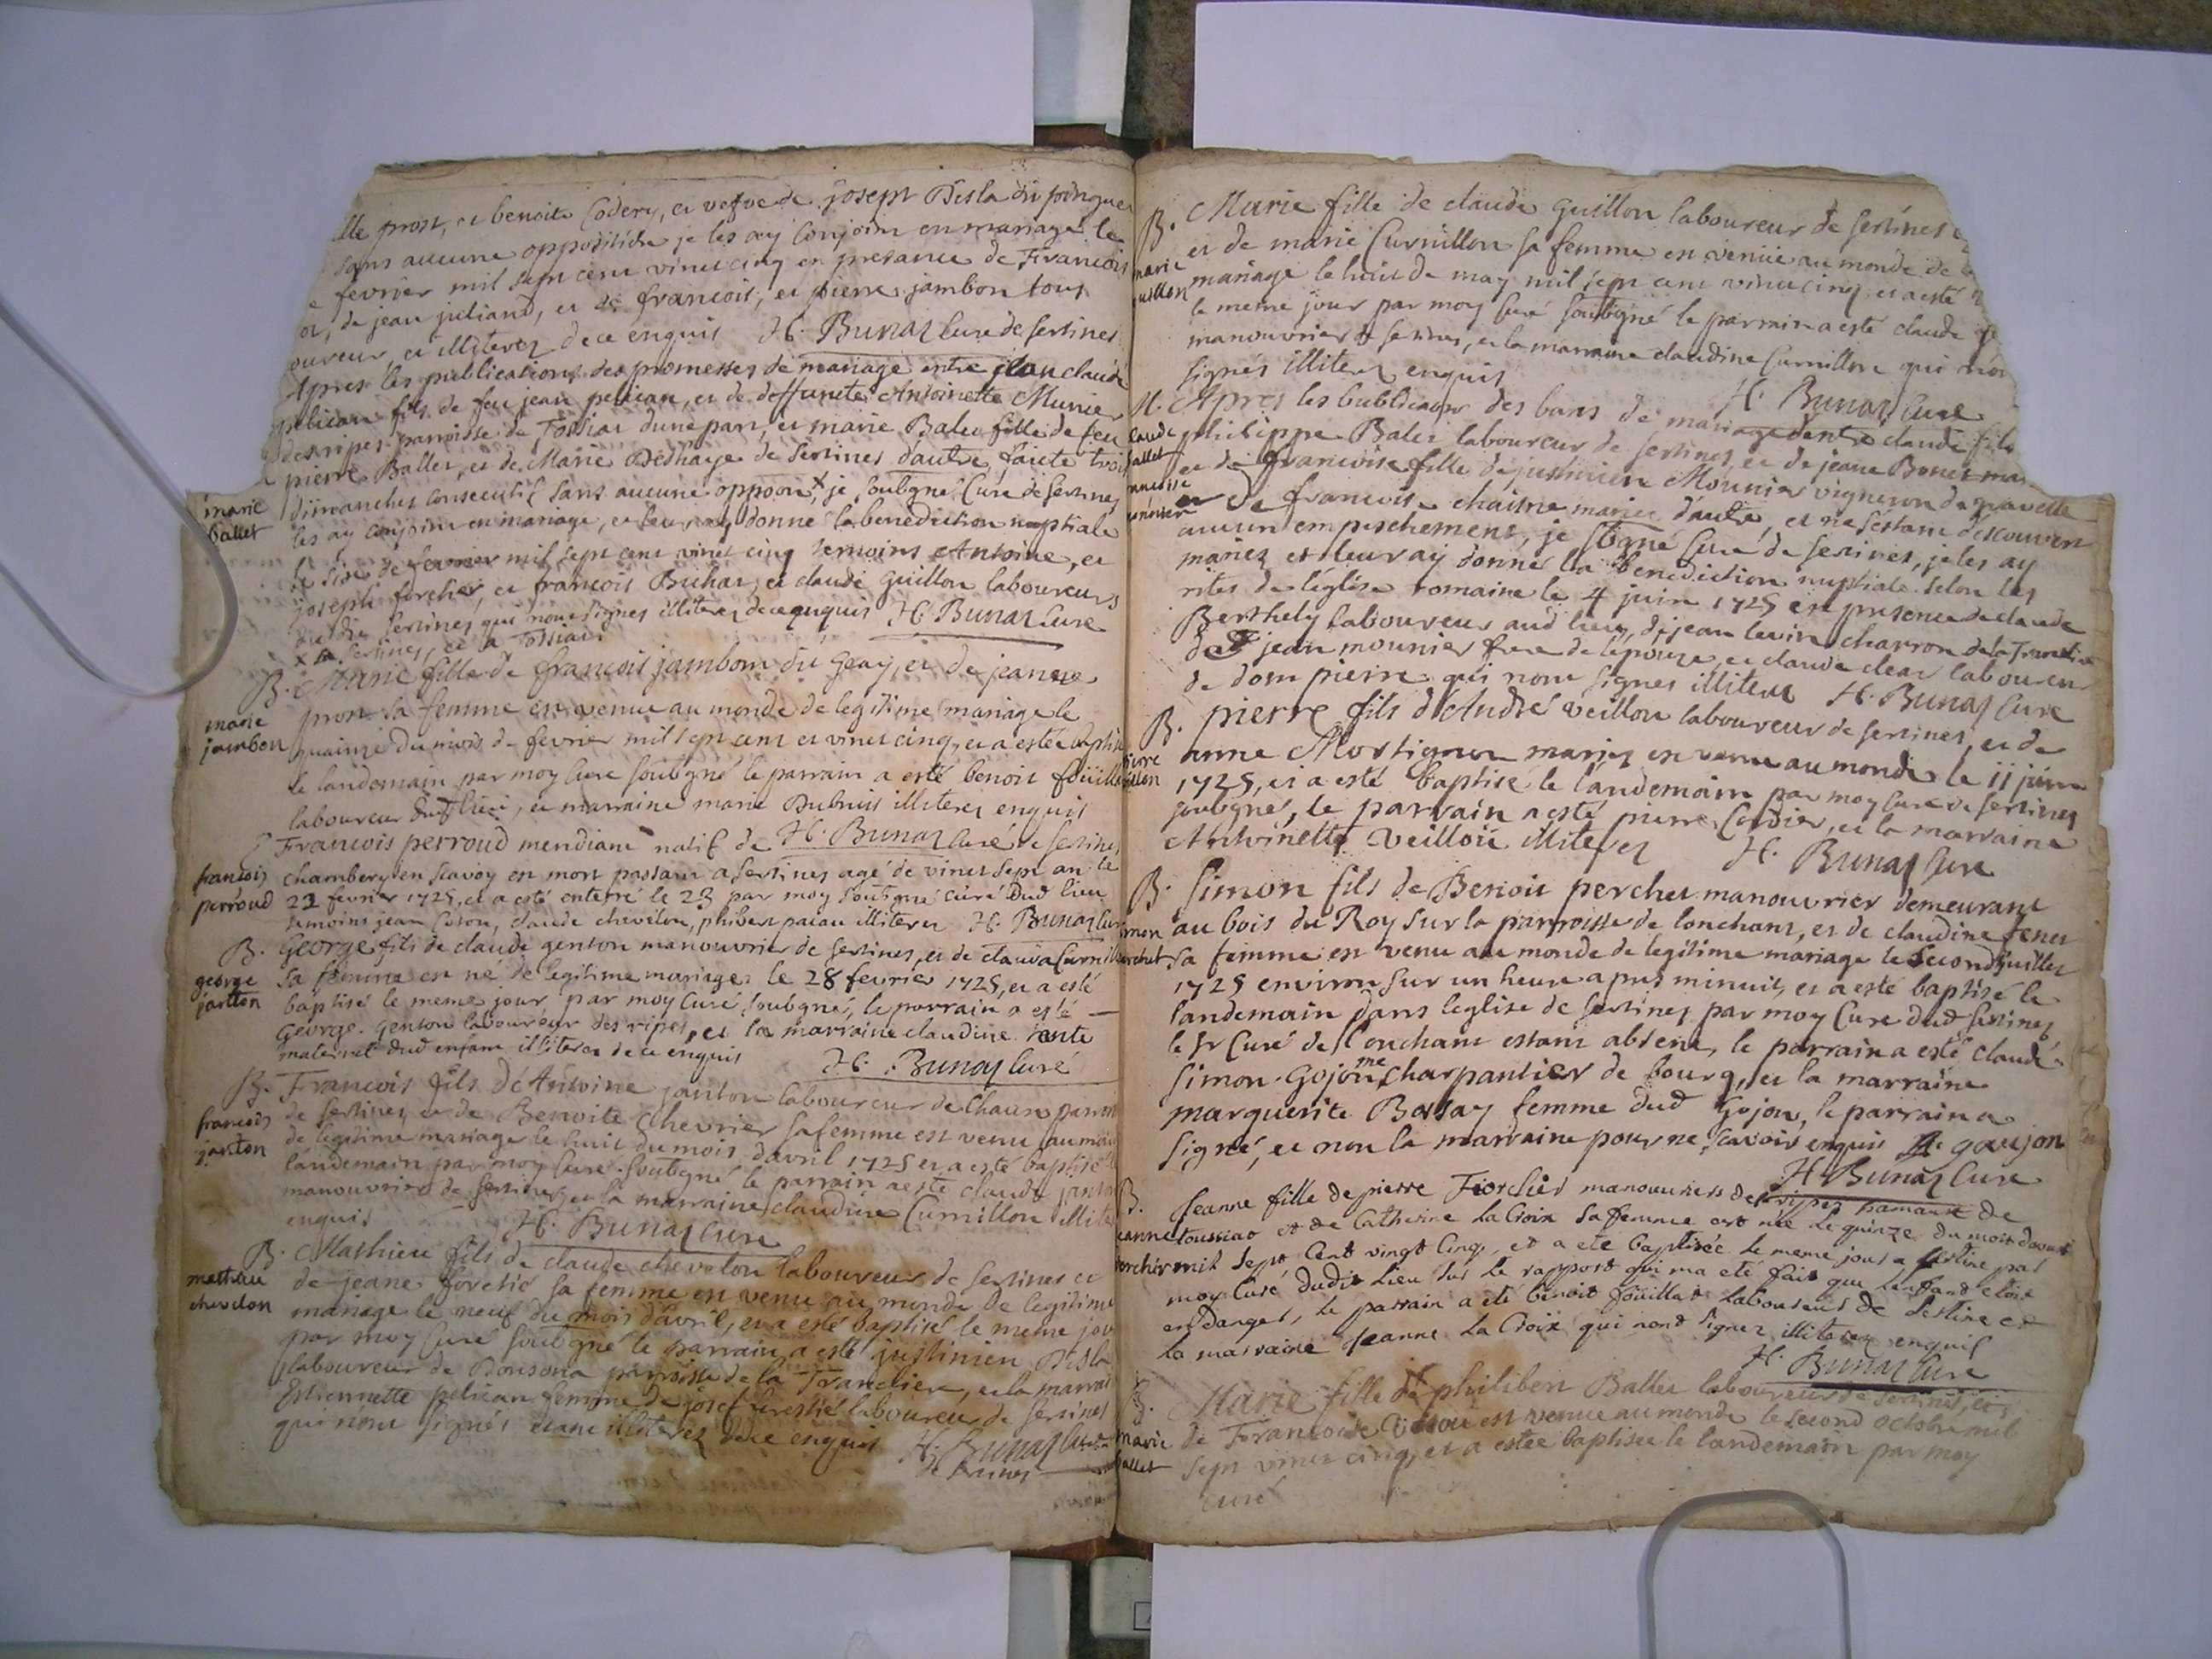 lle prost, et benoite Codery, et vefve de joseph Desla du
sans aucune opposition je les ay conjoint en mariage le
fevrier mil sept cent vinct cinq en presance de Francois
de jean juliand, et de francois, et pierre jambon tous
ouvreur et illiterez de ce enquis H. Bunaz Curé de sertines
Apres les publications des promesses de mariage entre jean claude
pelican fils de feu jean pelican, et de deffuncte Antoinette Munier
des ripes parroisse de Tossiat dune part, et marie Balet fille de feu
pierre Ballet, et de Marie Deshaye de Sertines dautre, faite trois
marie
ballet
dimanches consecutifs sans aucune oppoon, je soubigné Curé de sertines
les ay conjoint en mariage, et leur ay donné la benediction nuptiale
le six de fevrier mil sept cent vinct cinq temoins Antoine, et
joseph forchier, et francois Buchar, et claude guillon laboureurs
sertines qui nont signés illiterez de ce enquis H. Bunaz Curé
x de sertines, et a Tossiat
B. Marie fille de francois jambon du geay, et de jeanne
marie
jambon
prost sa femme est venue au monde de legitime mariage le
quainze du mois de fevrier mil sept cent et vinct cinq, et a esté baptisé
le landemain par moy Curé soubigné le parrain a esté benoit foüillet
laboureur dud lieu, et marraine marie Dubuis illiterez enquis
H. Bunaz Curé de sertines
Francois perroud mendiant natif de
francois
perroud
chambery en Savoy est mort passant a Sertines agé de vinct sept an le
22 fevrier 1725, et a esté enterré le 23 par moy soubigné curé dud lieu
temoins jean Coson, claude chevelon, philibert paian illiterez H. Bunaz Curé
B. George fils de claude genton manouvrier de sertines, et de clauda Curnillon
george
janton
sa femme est né de legitime mariage le 28 fevrier 1725, et a esté
baptisé le meme jour par moy Curé soubigné, le parrain a esté
George genton laboureur des ripes, et la marraine claudine tente
maternel dud enfant illiterez de ce enquis H. Bunaz Curé
B. Francois fils d'Antoine janton laboureur de chaux parroisse
francois
janton
de sertines et de Benoite Chevrier sa femme est venu au monde
de legitime mariage le huit du mois davril 1725 et a esté baptisé
landemain par moy Curé soubigné le parrain a esté claude janton
manouvrier de sertines, et la marraine claudine Curnillon illite
enquis H. Bunaz Curé
B. Mathieu fils de claude chevelon laboureur de sertines et
mathieu
chevelon
de jeane forchié sa femme est venu au monde de legitime
mariage le neuf du mois davril, et a esté baptisé le meme jour
par moy Curé soubigné le parrain a esté justinien Desla
laboureur de Donsona parroisse de la Trancliere, et la marrai
Estiennette pelican femme de josef forestié laboureur de sertines
qui nont signés etant illiterez de ce enquis H. Bunaz Curé
de sertines
B. Marie fille de claude guillon laboureur de sertines
marie
guillon
et de marie Curnillon sa femme est venüe au monde de
mariage le huit de may mil sept cent vinct cinq, et a esté
le meme jour par moy Curé soubigné le parrain a esté claude
manouvrier de sertines, et la marraine claudine Curnillon qui nont
signés illiterez enquis
H. Bunaz Curé
M. Apres les bublications des bans de mariage dentre claude fils
claude
ballet
philippe Balet laboureur de sertines, et de jeane Bonet
et de francoise fille de justinien Mounier vigneron de gravelle
et de francoise chaisne mariez dautre, et ne sestant descouvert
aucun empeschement, je signé Curé de sertines, je les ay
mariez et leur ay donné la benediction nuptiale selon les
rites de leglise romaine le 4 juin 1725 en presence de claude
Berthely laboureur aud lieu, de jean levin charron de la Trancliere
de jean mounier frere de lepouze, et claude clear laboureur
de dom pierre qui nont signés illiterez H. Bunaz Curé
B. pierre fils d'André veillon laboureur de sertines, et de
pierre
veillon
anne Mortignon mariez est venu au monde le 11 juin
1725, et a esté baptisé le landemain par moy Curé de sertines
soubigné, le parrain a esté pierre Cordier, et la marraine
Antoinette Veillon illiterez H. Bunaz Curé
B. Simon fils de Benoit perchet manouvrier demeurant
simon
perchet
au bois du Roy sur la parroisse de lonchant, et de claudine
sa femme est venu au monde de legitime mariage le second juillet
1725 environ sur un heure apres minuit, et a esté baptisé le
landemain dans leglise de sertines par moy Curé dud sertines
le sr Curé de Lonchant estant absent, le parrain a esté claude
simon Gojon me charpantier de bourg, et la marraine
marguerite Bossay femme dud Gojon, le parrain a
signé, et non la marraine pour ne scavoir enquis goujon
H. Bunaz Curé
B. Jeanne fille de pierre Forchier manouvriers des ripes hamaux de
jeanne
forchier
toussiat et de Catherine la Croix sa femme est née le quinze du mois daoust
mil sept Cent vingt Cinq, et a eté baptisée le meme jour a sertine par
moy Curé dudit lieu sur le rapport qui ma eté fait que lenfant etoit
en danger, le parrain a eté benoit foüillet laboureur de sertine et
la marraine Jeanne la Croix qui nont signez illiterez enquis
H. Bunaz Curé
B. Marie fille de philibert Ballet laboureur de sertines, et
marie
ballet
de Francoise est venue au monde le second octobre mil
sept vinct cinq, et a estée baptisée le landemain par moy
curé